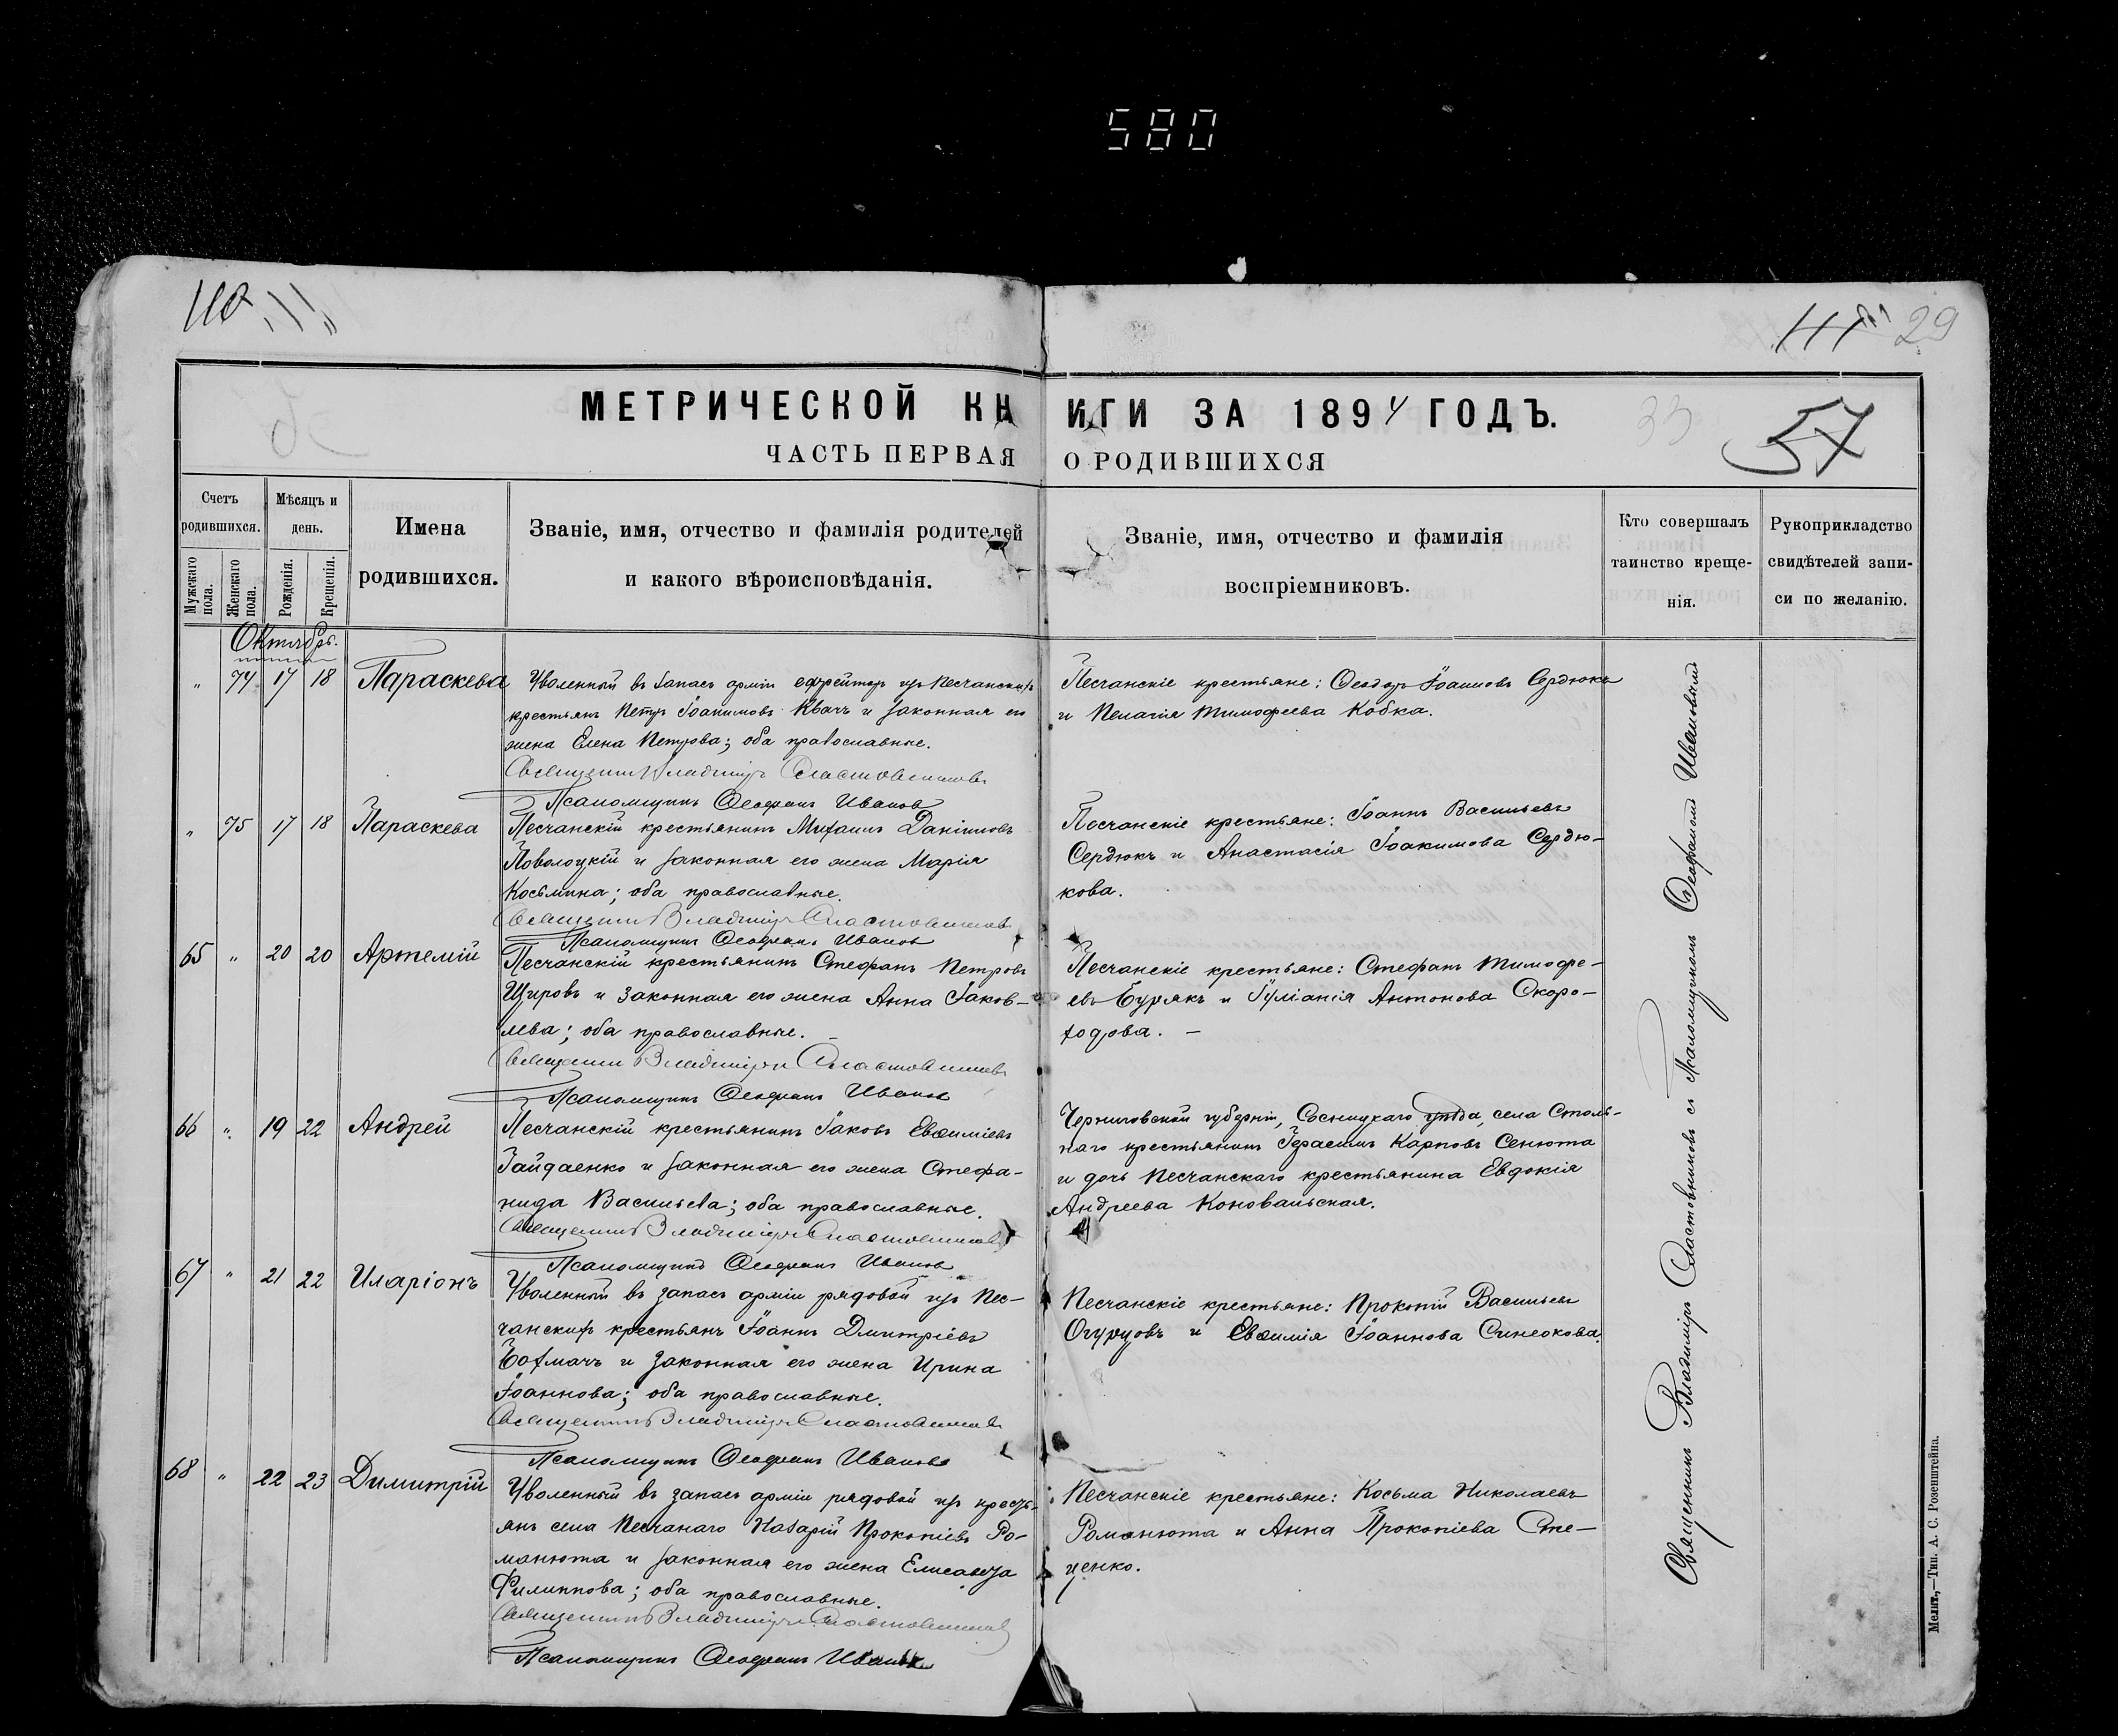 580
110
111 29
МЕТРИЧЕСКОЙ КНИГИ ЗА 1894 ГОДЪ.
33
57
ЧАСТЬ ПЕРВАЯ О РОДИВШИХСЯ
Счетъ родившихся.
Мужскаго пола.
Женскаго пола.
Мѣсяцъ и день.
Рожденія.
Крещенія.
Имена родившихся.
Званіе, имя, отчество и фамилія родителей
и какого вѣроисповѣданія.
Званіе, имя, отчество и фамилія
воспріемниковъ.
Кто совершалъ
таинство креще-
нія.
Рукоприкладство
свидѣтелей запи-
си по желанію.
Октябрь.
" 74 17 18 Параскева
Уволенный въ запасъ арміи ефрейторъ изъ Песчанскихъ
крестьянъ Петръ Іоакимовъ Квачъ и законная его
жена Елена Петрова; оба православные.
Священникъ Владиміръ Сластовниковъ
Псаломщикъ Ѳеофанъ Ивановъ
Песчанскіе крестьяне: Ѳеодоръ Іоанновъ Сердюкъ
и Пелагія Тимофеева Кобка.
" 75 17 18 Параскева
Песчанскій крестьянинъ Михаилъ Даніиловъ
Поволоцкій и законная его жена Марія
Косьмина; оба православные.
Священникъ Владиміръ Сластовниковъ
Псаломщикъ Ѳеофанъ Ивановъ
Песчанскіе крестьяне: Іоаннъ Васильевъ
Сердюкъ и Анастасія Іоакимова Сердю-
кова.
65 " 20 20 Артемій
Песчанскій крестьянинъ Стефанъ Петровъ
Щировъ и законная его жена Анна Іаков-
лева; оба православные.
Священникъ Владиміръ Сластовниковъ
Псаломщикъ Ѳеофанъ Ивановъ
Песчанскіе крестьяне: Стефанъ Тимофе-
евъ Бурякъ и Іуліанія Антонова Скоро-
ходова. —
66 " 19 22 Андрей
Песчанскій крестьянинъ Іаковъ Евѳиміевъ
Гайдаенко и законная его жена Стефа-
нида Васильева; оба православные.
Священникъ Владиміръ Сластовниковъ
Псаломщикъ Ѳеофанъ Ивановъ
Черниговской губерніи, Сосницкаго уѣзда, села Столь-
наго крестьянинъ Герасимъ Карповъ Сенюта
и дочь Песчанскаго крестьянина Евдокія
Андреева Коновальская.
67 " 21 22 Иларіонъ
Уволенный въ запасъ арміи рядовой изъ Пес-
чанскихъ крестьянъ Іоаннъ Димитріевъ
Бахмачъ и законная его жена Ирина
Іоаннова; оба православные.
Священникъ Владиміръ Сластовниковъ
Псаломщикъ Ѳеофанъ Ивановъ
Песчанскіе крестьяне: Прокопій Васильевъ
Огурцовъ и Евѳимія Іоаннова Синеокова.
68 " 22 23 Димитрій
Уволенный въ запасъ арміи рядовой изъ кресть-
янъ села Песчанаго Назарій Прокопіевъ Ро-
манюта и законная его жена Елисавета
Филиппова; оба православные.
Священникъ Владиміръ Сластовниковъ
Псаломщикъ Ѳеофанъ Ивановъ
Песчанскіе крестьяне: Косьма Николаевъ
Романюта и Анна Прокопіева Сте-
ценко.
Священникъ Владиміръ Сластовниковъ съ Псаломщикомъ Ѳеофаномъ Ивановымъ
Мелит,—Тип. А. С. Розенштейна.